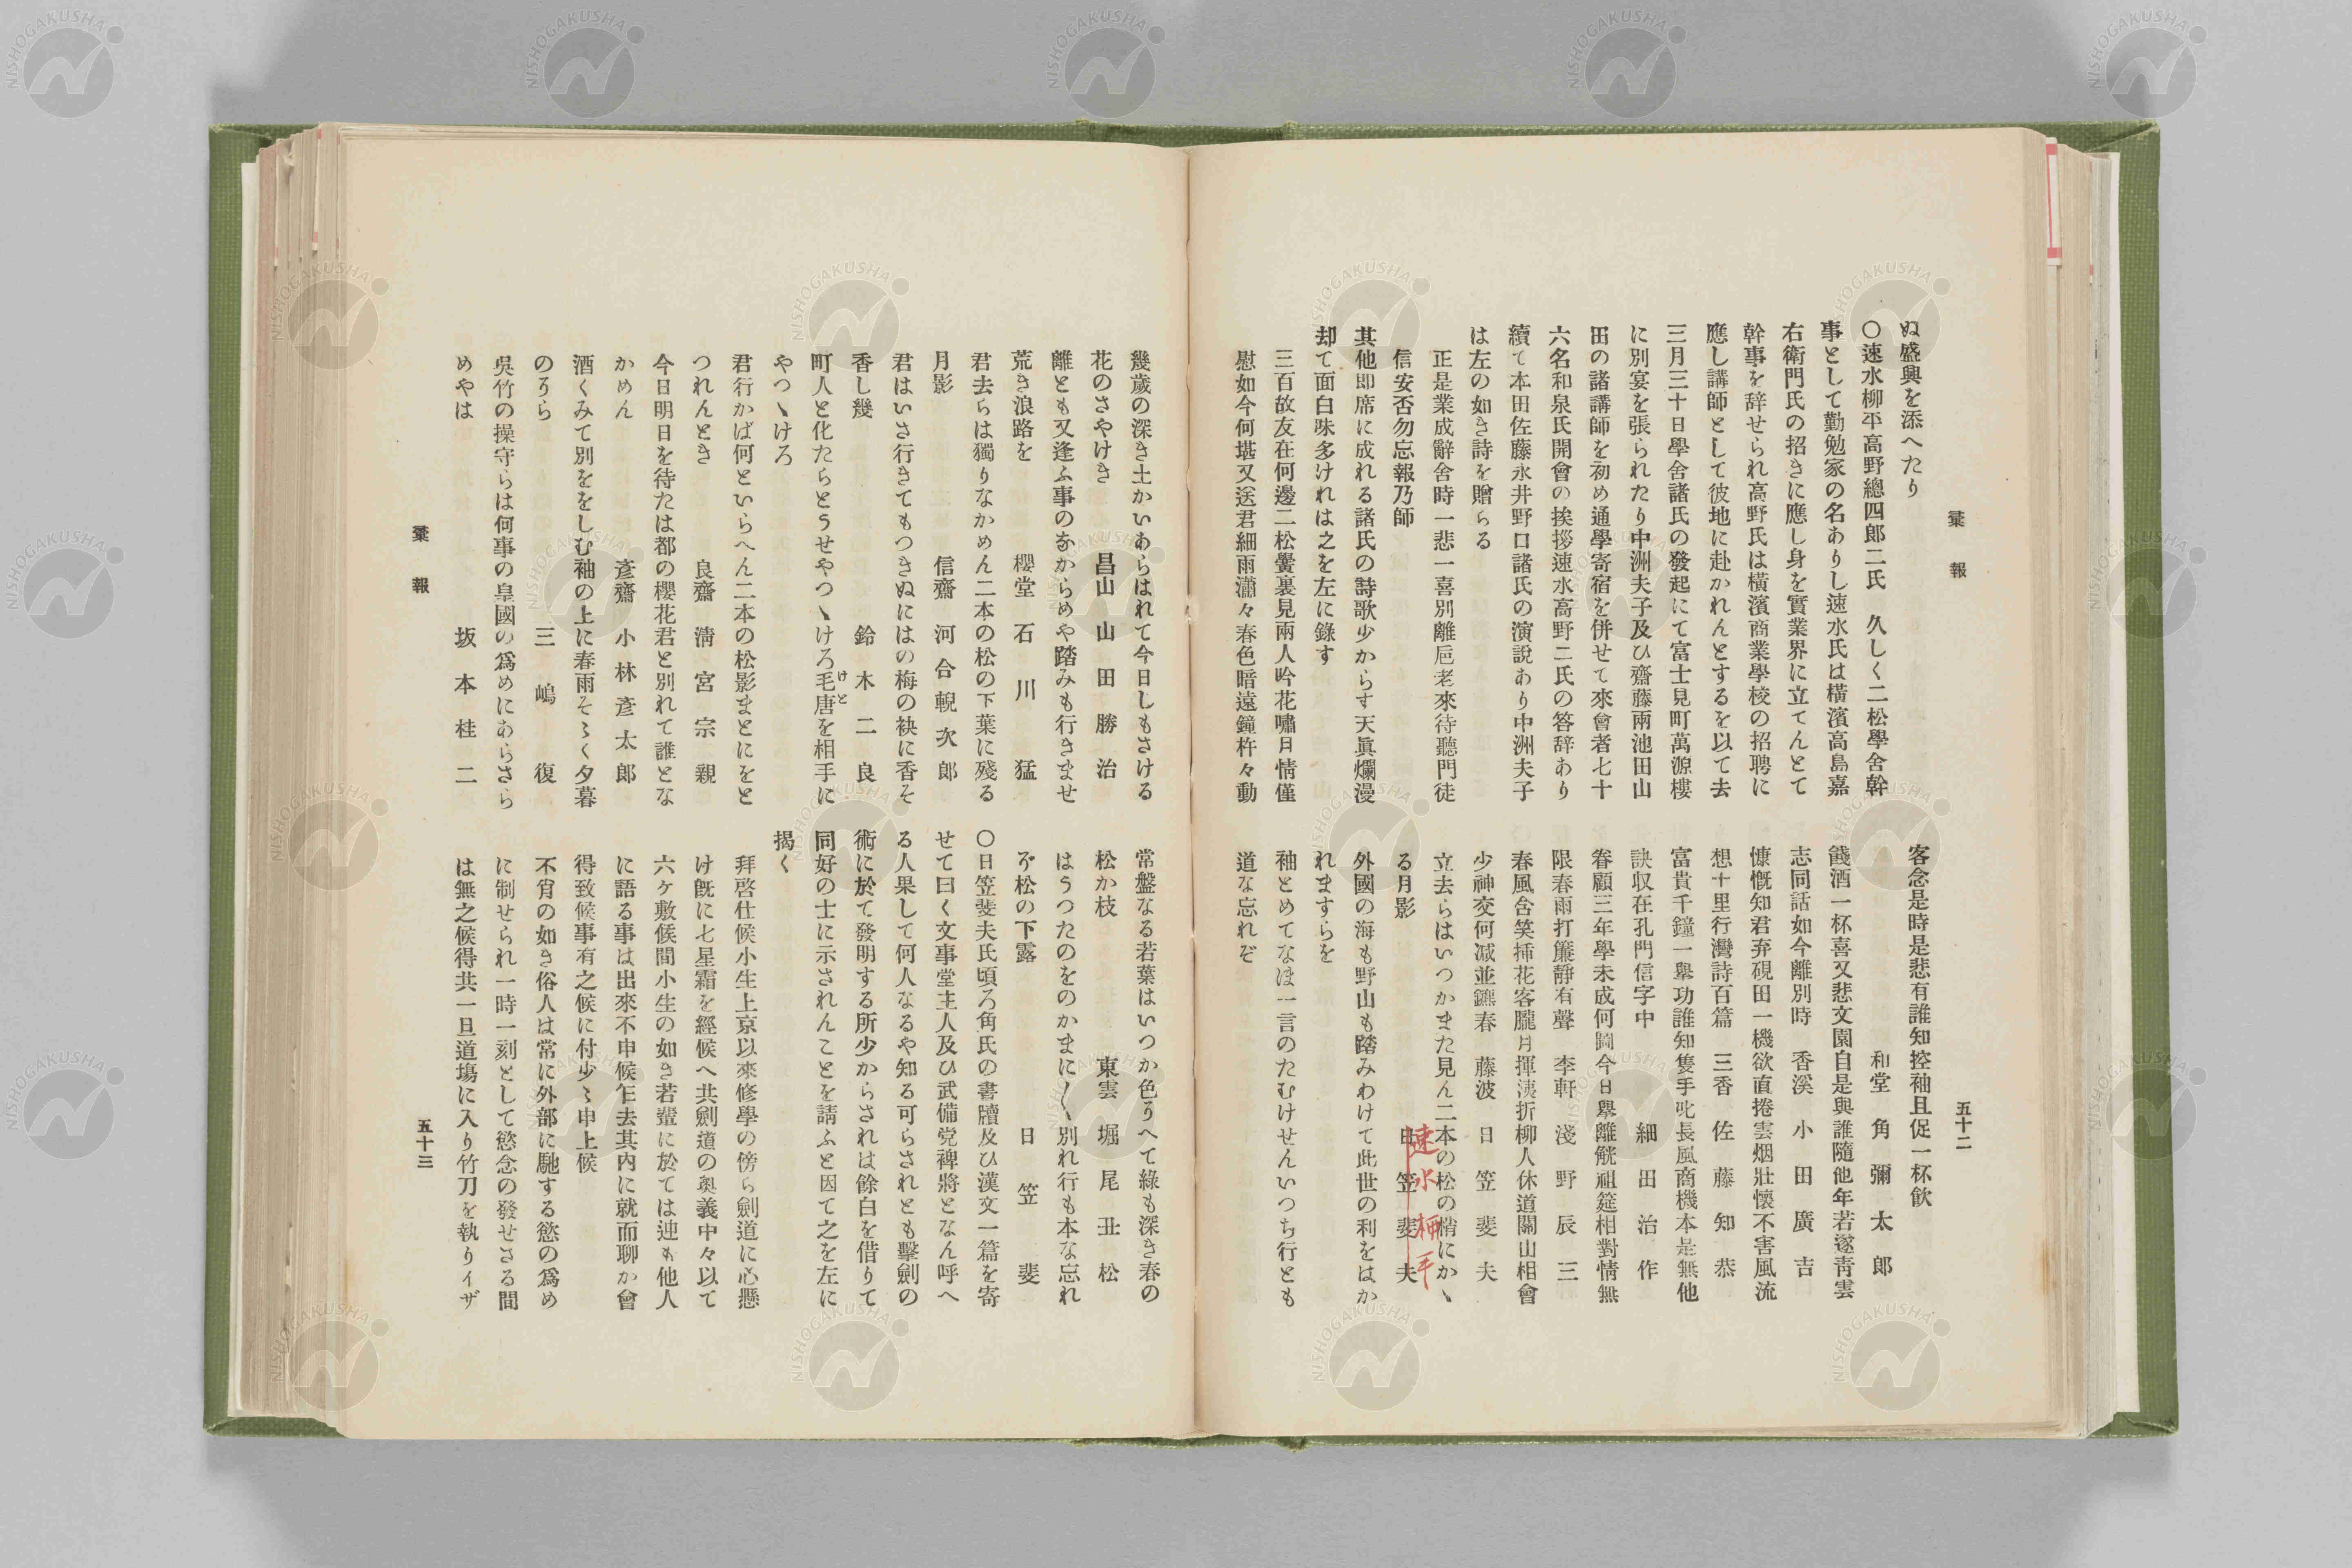 彙報
五十二
ぬ盛興を添へたり
〇速水柳平高野總四郎二氏　久しく二松學舍幹
事として勤勉家の名ありし速水氏は橫濱高島嘉
右衛門氏の招きに應し身を實業界に立てんとて
幹事を辞せられ高野氏は橫濱商業學校の招聘に
應し講師として彼地に赴かれんとするを以て去
三月三十日學舍諸氏の發起にて富士見町萬源樓
に別宴を張られたり中洲夫子及ひ齋藤兩池田山
田の諸講師を初め通學寄宿を併せて來會者七十
六名和泉氏開會の挨拶速水高野二氏の答辞あり
續て本田佐藤永井野口諸氏の演説あり中洲夫子
は左の如き詩を贈らる
正是業成辭舍時一悲一喜別離巵老來待聽門徒
信安否勿忘報乃師
其他即席に成れる諸氏の詩歌少からす天眞爛漫
却て面白味多けれは之を左に錄す
三百故友在何邊二松黌裏見兩人吟花嘯月情僅
慰如今何堪又送君細雨瀟々春色暗遠鐘杵々動
客念是時是悲有誰知控袖且促一杯飮
和堂　角彌太郎
餞酒一杯喜又悲文園自是與誰隨他年若遂靑雲
志同話如今離別時　香溪　小田廣吉
慷慨知君弃硯田一機欲直捲雲烟壯懷不害風流
想十里行灣詩百篇　三香　佐藤知恭
富貴千鐘一擧功誰知隻手叱長風商機本是無他
訣収在孔門信字中　細田治作
眷顧三年學未成何圖今日擧離觥祖筵相對情無
限春雨打簾靜有聲　李軒　淺野辰三
春風含笑揷花客朧月揮淚折柳人休道關山相會
少神交何減並鑣春　藤波　日笠斐夫
立去らはいつかまた見ん二本の松の梢にかゝ
る月影　日笠斐夫
速水柳平
外國の海も野山も踏みわけて此世の利をはか
れますらを
袖とめてなほ一言のたむけせんいつち行とも
道な忘れぞ
幾歲の深き土かいあらはれて今日しもさける
花のさやけき　昌山　山田勝治
離とも又逢ふ事のなからめや踏みも行きませ
荒き浪路を　櫻堂　石川猛
君去らは獨りなかめん二本の松の下葉に殘る
月影　信齋　河合輗次郎
君はいさ行きてもつきぬにはの梅の袂に香そ
香し幾　鈴木二良
町人と化たらとうせやつゝけろ毛唐を相手に
けと
やつゝけろ
君行かば何といらへん二本の松影まとにをと
つれんとき　良齋　淸宮宗親
今日明日を待たは都の櫻花君と別れて誰とな
かめん　彥齋　小林彥太郎
酒くみて別ををしむ袖の上に春雨そゝく夕暮
のうら　三嶋復
吳竹の操守らは何事の皇國の爲めにあらさら
めやは　坂本桂二
常盤なる若葉はいつか色うへて綠も深き春の
松か枝　東雲　堀尾丑松
はうつたのをのかまに〱別れ行も本な忘れ
ぞ松の下露　日笠斐
〇日笠斐夫氏頃ろ角氏の書牘及ひ漢文一篇を寄
せて曰く文事堂主人及ひ武備党裨將となん呼へ
る人果して何人なるや知る可らされとも擊劍の
術に於て發明する所少からされは餘白を借りて
同好の士に示されんことを請ふと因て之を左に
揭く
拜啓仕候小生上京以來修學の傍ら劍道に心懸
け旣に七星霜を經候へ共劍道の奥義中々以て
六ケ敷候間小生の如き若輩に於ては迚も他人
に語る事は出來不申候乍去其内に就而聊か會
得致候事有之候に付少々申上候
不肖の如き俗人は常に外部に馳する慾の爲め
に制せられ一時一刻として慾念の發せさる間
は無之候得共一旦道場に入り竹刀を執りイザ
彙報
五十三